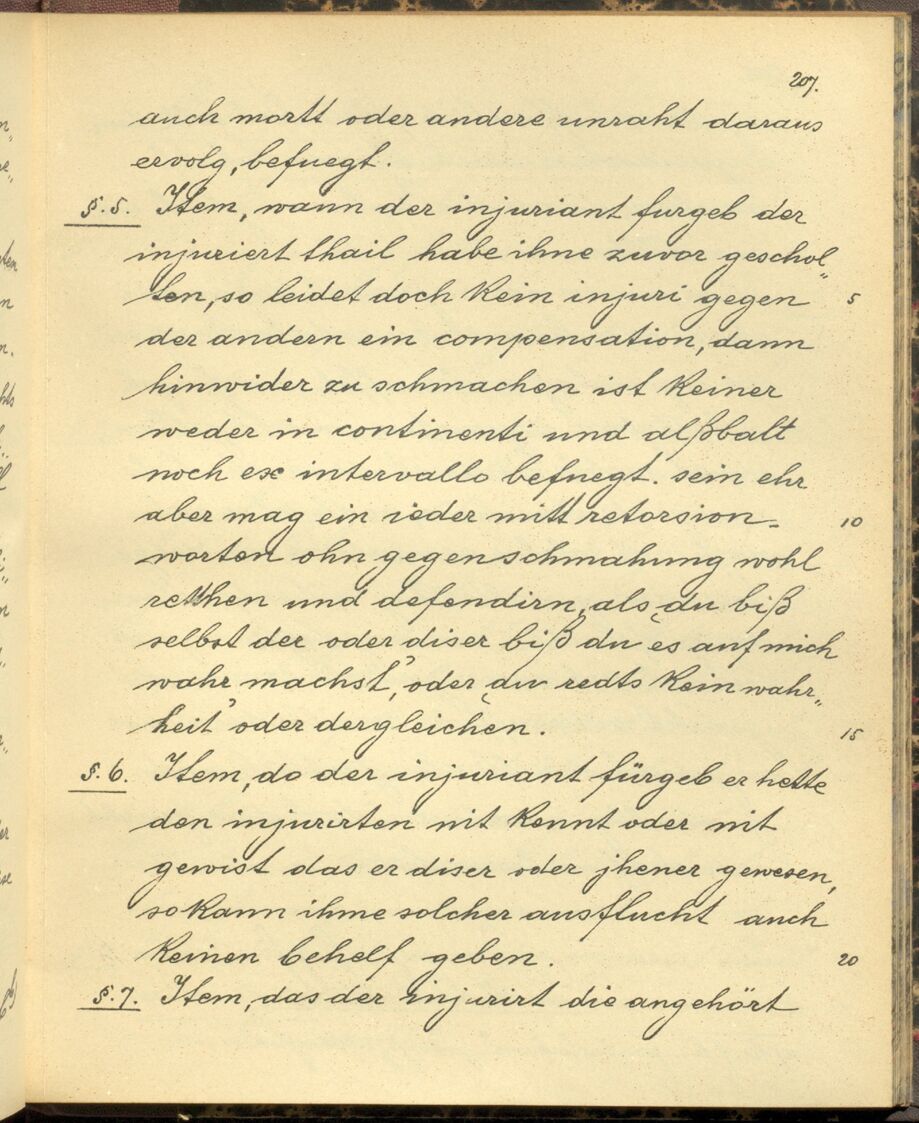 207.
auch mortt oder andere unraht daraus
ervolg, befuegt.
§. 5. Item, wann der injuriant furgeb der
injuriert thail habe ihne zuvor geschol„
ten, so leidet doch kein injuri gegen 5
der andern ein compensation, dann
hinwider zu schmachen ist keiner
weder in continenti und alßbalt
noch ex intervallo befuegt. sein ehr
aber mag ein ieder mitt retorsion- 10
worten ohn gegenschmahung wohl
retthen und defendirn, als ‚du biß
selbst der oder diser biß du es auf mich
wahr machst’, oder ‚du redts kein wahr„
heit’ oder dergleichen. 15
§. 6. Item, do der injuriant fürgeb er hette
den injurirten nit kennt oder nit
gewist das er diser oder jhener gewesen,
so kann ihme solcher ausflucht auch
keinen behelf geben. 20
§. 7. Item, das der injurirt die angehört